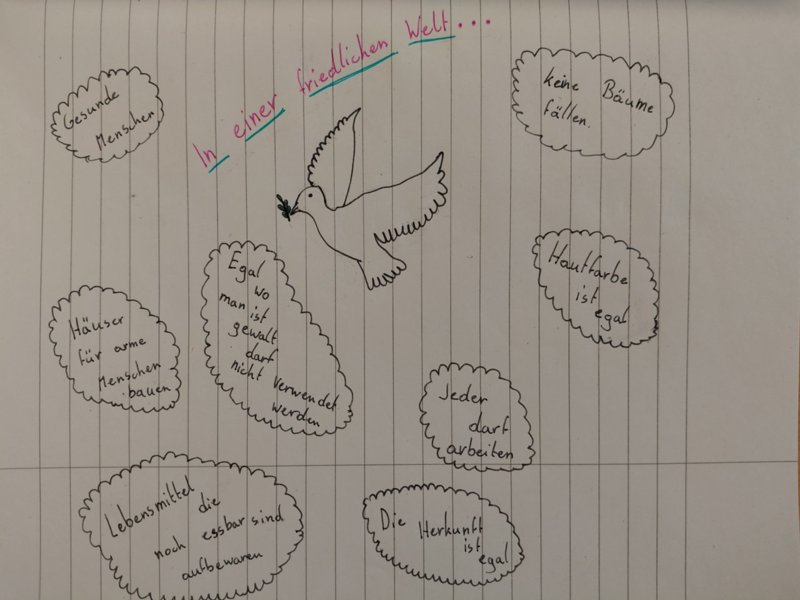 In einer friedlichen Welt...
Gesunde
Menschen
keine Bäume
fällen.
Egal
wo
man ist
gewalt
darf
nicht verwendet
werden
Hautfarbe
ist
egal
Häuser
für arme
Menschen
bauen
Jeder
darf
arbeiten
Lebensmittel
die
noch essbar sind
aufbewaren
Die Herkunft
ist
egal